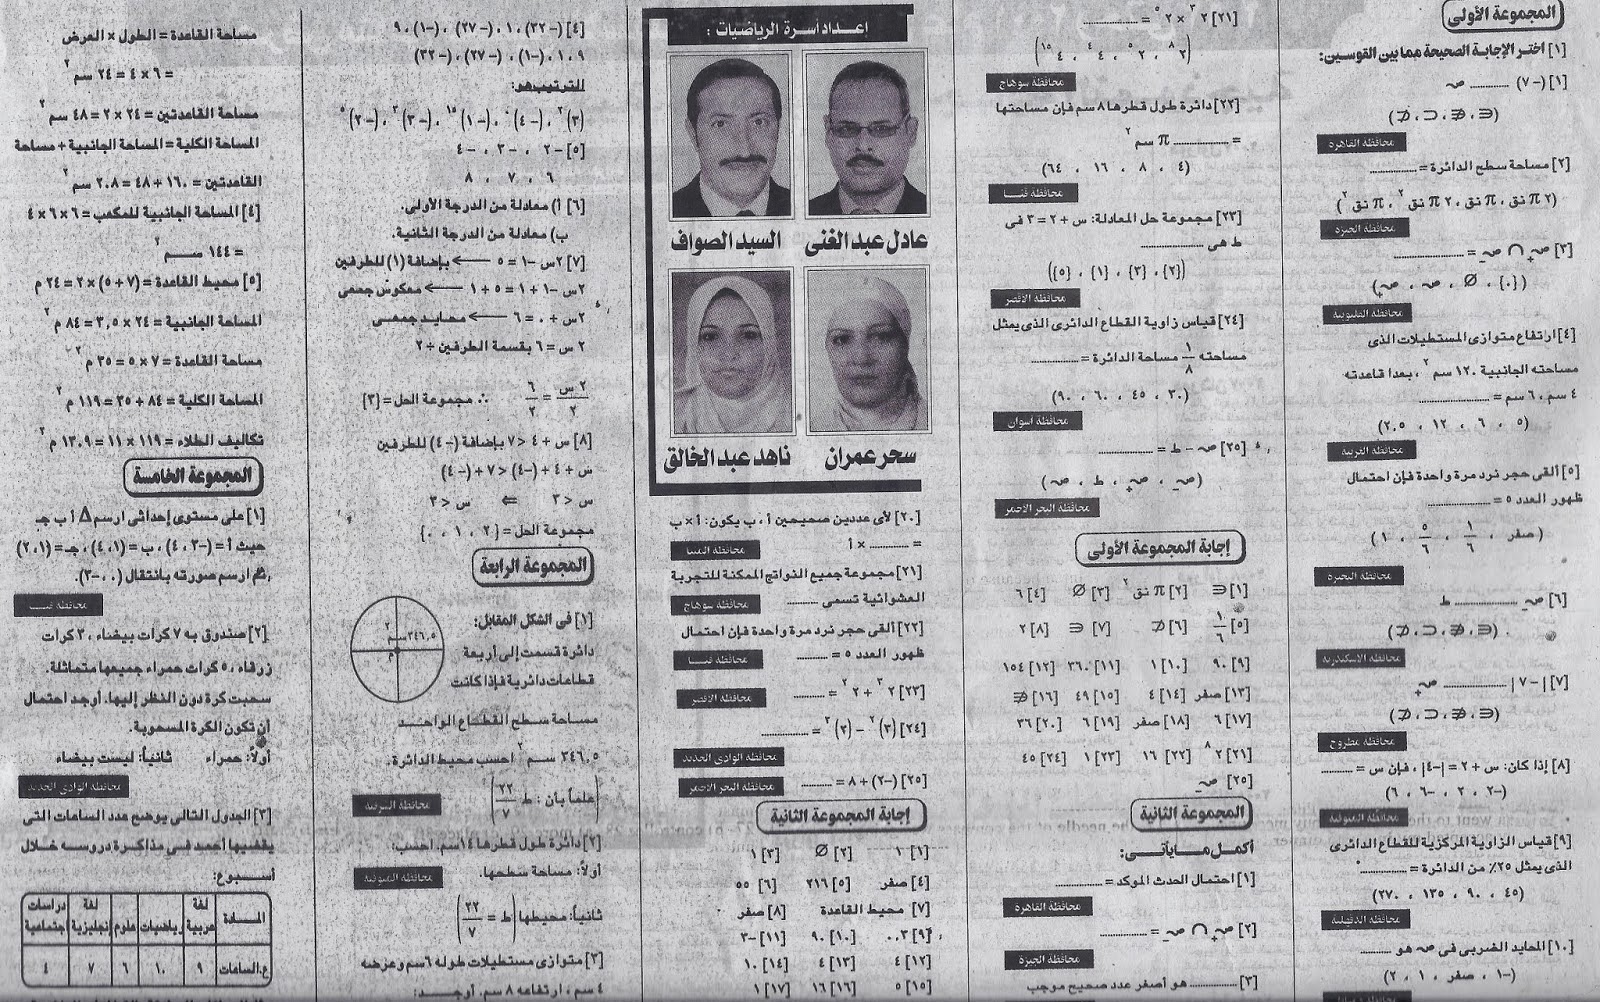 المجموعة الأولى
[١] اختر الإجابة الصحيحة مما بين القوسين:
[١] (-٧) ............ صـ
(∈، ∉، ⊂، ⊄)
محافظة القاهرة
[٢] مساحة سطح الدائرة = ............
(٢ π نق، π نق، ٢ π نق ٢، π نق ٢)
محافظة الجيزة
[٣] صـ+ ∩ صـ- = ............
({٠}، ∅، صـ، صـ+)
محافظة القليوبية
[٤] ارتفاع متوازى المستطيلات الذى
مساحته الجانبية ١٢٠ سم ٢، بعدا قاعدته
٤ سم، ٦ سم = ............
(٥، ٦، ١٢، ٢.٥)
محافظة الغربية
[٥] ألقى حجر نرد مرة واحدة فإن احتمال
ظهور العدد ٥ = ............
(صفر، ١/٦، ٥/٦، ١)
محافظة البحيرة
[٦] صـ- ............ ط
(∈، ∉، ⊂، ⊄)
محافظة الاسكندرية
[٧] |-٧| ............ صـ+
(∈، ∉، ⊂، ⊄)
محافظة مطروح
[٨] إذا كان: س + ٢ = |-٤|، فإن س = ............
(-٢، ٢، -٦، ٦)
محافظة المنوفية
[٩] قياس الزاوية المركزية للقطاع الدائرى
الذى يمثل ٢٥٪ من الدائرة = ............
(٤٥، ٩٠، ١٣٥، ٢٧٠)
محافظة الدقهلية
[١٠] المحايد الضربى فى صـ هو ............
(-١، صفر، ١، ٢)
[٢١] ٢ ٣ × ٢ ٥ = ............
(٢ ٨، ٢ ٥، ٤ ٤، ٤ ١٥)
محافظة سوهاج
[٢٢] دائرة طول قطرها ٨ سم فإن مساحتها
= ............ π سم ٢
(٤، ٨، ١٦، ٦٤)
محافظة قنا
[٢٣] مجموعة حل المعادلة: س + ٢ = ٣ فى
ط هى ............
({٢}، {٣}، {١}، {٥})
محافظة الأقصر
[٢٤] قياس زاوية القطاع الدائرى الذى يمثل
مساحته ١/٨ مساحة الدائرة = ............
(٣٠، ٤٥، ٦٠، ٩٠)
محافظة أسوان
[٢٥] صـ - ط = ............
(صـ-، صـ+، ط، صـ)
محافظة البحر الاحمر
إجابة المجموعة الأولى
[١] ∈ [٢] π نق ٢ [٣] ∅ [٤] ٦
[٥] ١/٦ [٦] ⊄ [٧] ∈ [٨] ٢
[٩] ٩٠ [١٠] ١ [١١] ٣٦٠ [١٢] ١٥٤
[١٣] صفر [١٤] ٤ [١٥] ٤٩ [١٦] ∉
[١٧] ٦ [١٨] صفر [١٩] ٦ [٢٠] ٣٦
[٢١] ٢ ٨ [٢٢] ١٦ [٢٣] ١ [٢٤] ٤٥
[٢٥] صـ-
المجموعة الثانية
أكمل ما يأتى:
[١] احتمال الحدث المؤكد = ............
محافظة القاهرة
[٢] صـ+ ∩ صـ- = ............
محافظة الجيزة
[٣] ............ هو أصغر عدد صحيح موجب
إعداد أسرة الرياضيات:
عادل عبد الغنى
السيد الصواف
سحر عمران
ناهد عبد الخالق
[٢٠] لأى عددين صحيحين أ، ب يكون: أ × ب
= ............ × أ
محافظة المنيا
[٢١] مجموعة جميع النواتج الممكنة للتجربة
العشوائية تسمى ............
محافظة سوهاج
[٢٢] ألقى حجر نرد مرة واحدة فإن احتمال
ظهور العدد ٥ = ............
محافظة قنا
[٢٣] ٢ ٣ + ٢ ٢ = ............
محافظة الأقصر
[٢٤] (٣) ٢ - (٢) ٢ = ............
محافظة الوادى الجديد
[٢٥] (-٢) + ٨ = ............
محافظة البحر الاحمر
إجابة المجموعة الثانية
[١] ١ [٢] ∅ [٣] ١
[٤] صفر [٥] ٢١٦ [٦] ٥٥
[٧] محيط القاعدة [٨] صفر
[٩] ٠.٣ [١٠] ٩٠ [١١] -٣
[١٢] ٤ [١٣] ٤ [١٤] ١٠
[١٥] ٥ [١٦] ١٦ [١٧] ١
[٤] (-٣٢)، ١، (-٢٧)، (-١)، ٩
٩، ١، (-١)، (-٢٧)، (-٣٢)
الترتيب هو:
(٣) ٢، (-٤) ٠، (-١) ١٥، (-٣) ٣، (-٢) ٥
[٥] -٢، -٣، -٤
٦، ٧، ٨
[٦] أ) معادلة من الدرجة الأولى.
ب) معادلة من الدرجة الثانية.
[٧] ٢س - ١ = ٥ ← بإضافة (١) للطرفين
٢س - ١ + ١ = ٥ + ١ ← معكوس جمعى
٢س + ٠ = ٦ ← محايد جمعى
٢ س = ٦ بقسمة الطرفين ÷ ٢
٢ س/٢ = ٦/٢ ∴ مجموعة الحل = {٣}
[٨] س + ٤ < ٧ بإضافة (-٤) للطرفين
س + ٤ + (-٤) < ٧ + (-٤)
س < ٣ ⇐ س < ٣
مجموعة الحل = {٢، ١، ٠}
المجموعة الرابعة
[١] فى الشكل المقابل:
دائرة قسمت إلى أربعة
قطاعات دائرية فإذا كانت
مساحة سطح القطاع الواحد
٣٤٦,٥ سم ٢ احسب محيط الدائرة.
(علما بأن: ط = ٢٢/٧)
محافظة الشرقية
٣٤٦,٥ سم ٢
م
[٢] دائرة طول قطرها ١٤ سم. احسب:
أولاً: مساحة سطحها.
محافظة المنوفية
ثانياً: محيطها (ط = ٢٢/٧)
[٣] متوازى مستطيلات طوله ٦ سم وعرضه
٤ سم، ارتفاعه ٨ سم. أوجد:
مساحة القاعدة = الطول × العرض
= ٦ × ٤ = ٢٤ سم ٢
مساحة القاعدتين = ٢٤ × ٢ = ٤٨ سم ٢
المساحة الكلية = المساحة الجانبية + مساحة
القاعدتين = ١٦٠ + ٤٨ = ٢٠٨ سم ٢
[٤] المساحة الجانبية للمكعب = ٦ × ٦ × ٤
= ١٤٤ سم ٢
[٥] محيط القاعدة = (٧ + ٥) × ٢ = ٢٤ م
المساحة الجانبية = ٢٤ × ٣,٥ = ٨٤ م ٢
مساحة القاعدة = ٧ × ٥ = ٣٥ م ٢
المساحة الكلية = ٨٤ + ٣٥ = ١١٩ م ٢
تكاليف الطلاء = ١١٩ × ١١ = ١٣٠٩ م ٢
المجموعة الخامسة
[١] على مستوى إحداثى ارسم Δ أ ب جـ
حيث أ = (-٣، ٤)، ب = (١، ٤)، جـ = (١، ٢)
ثم ارسم صورته بانتقال (٠، -٣).
محافظة قنا
[٢] صندوق به ٧ كرات بيضاء، ٣ كرات
زرقاء، ٥ كرات حمراء جميعها متماثلة.
سحبت كرة دون النظر إليها. أوجد احتمال
أن تكون الكرة المسحوبة.
أولاً: حمراء ثانياً: ليست بيضاء
محافظة الوادى الجديد
[٣] الجدول التالى يوضح عدد الساعات التى
يقضيها أحمد فى مذاكرة دروسه خلال
أسبوع:
المادة لغة عربية رياضيات علوم لغة إنجليزية دراسات اجتماعية
ع.الساعات ٩ ١٠ ٦ ٧ ٤